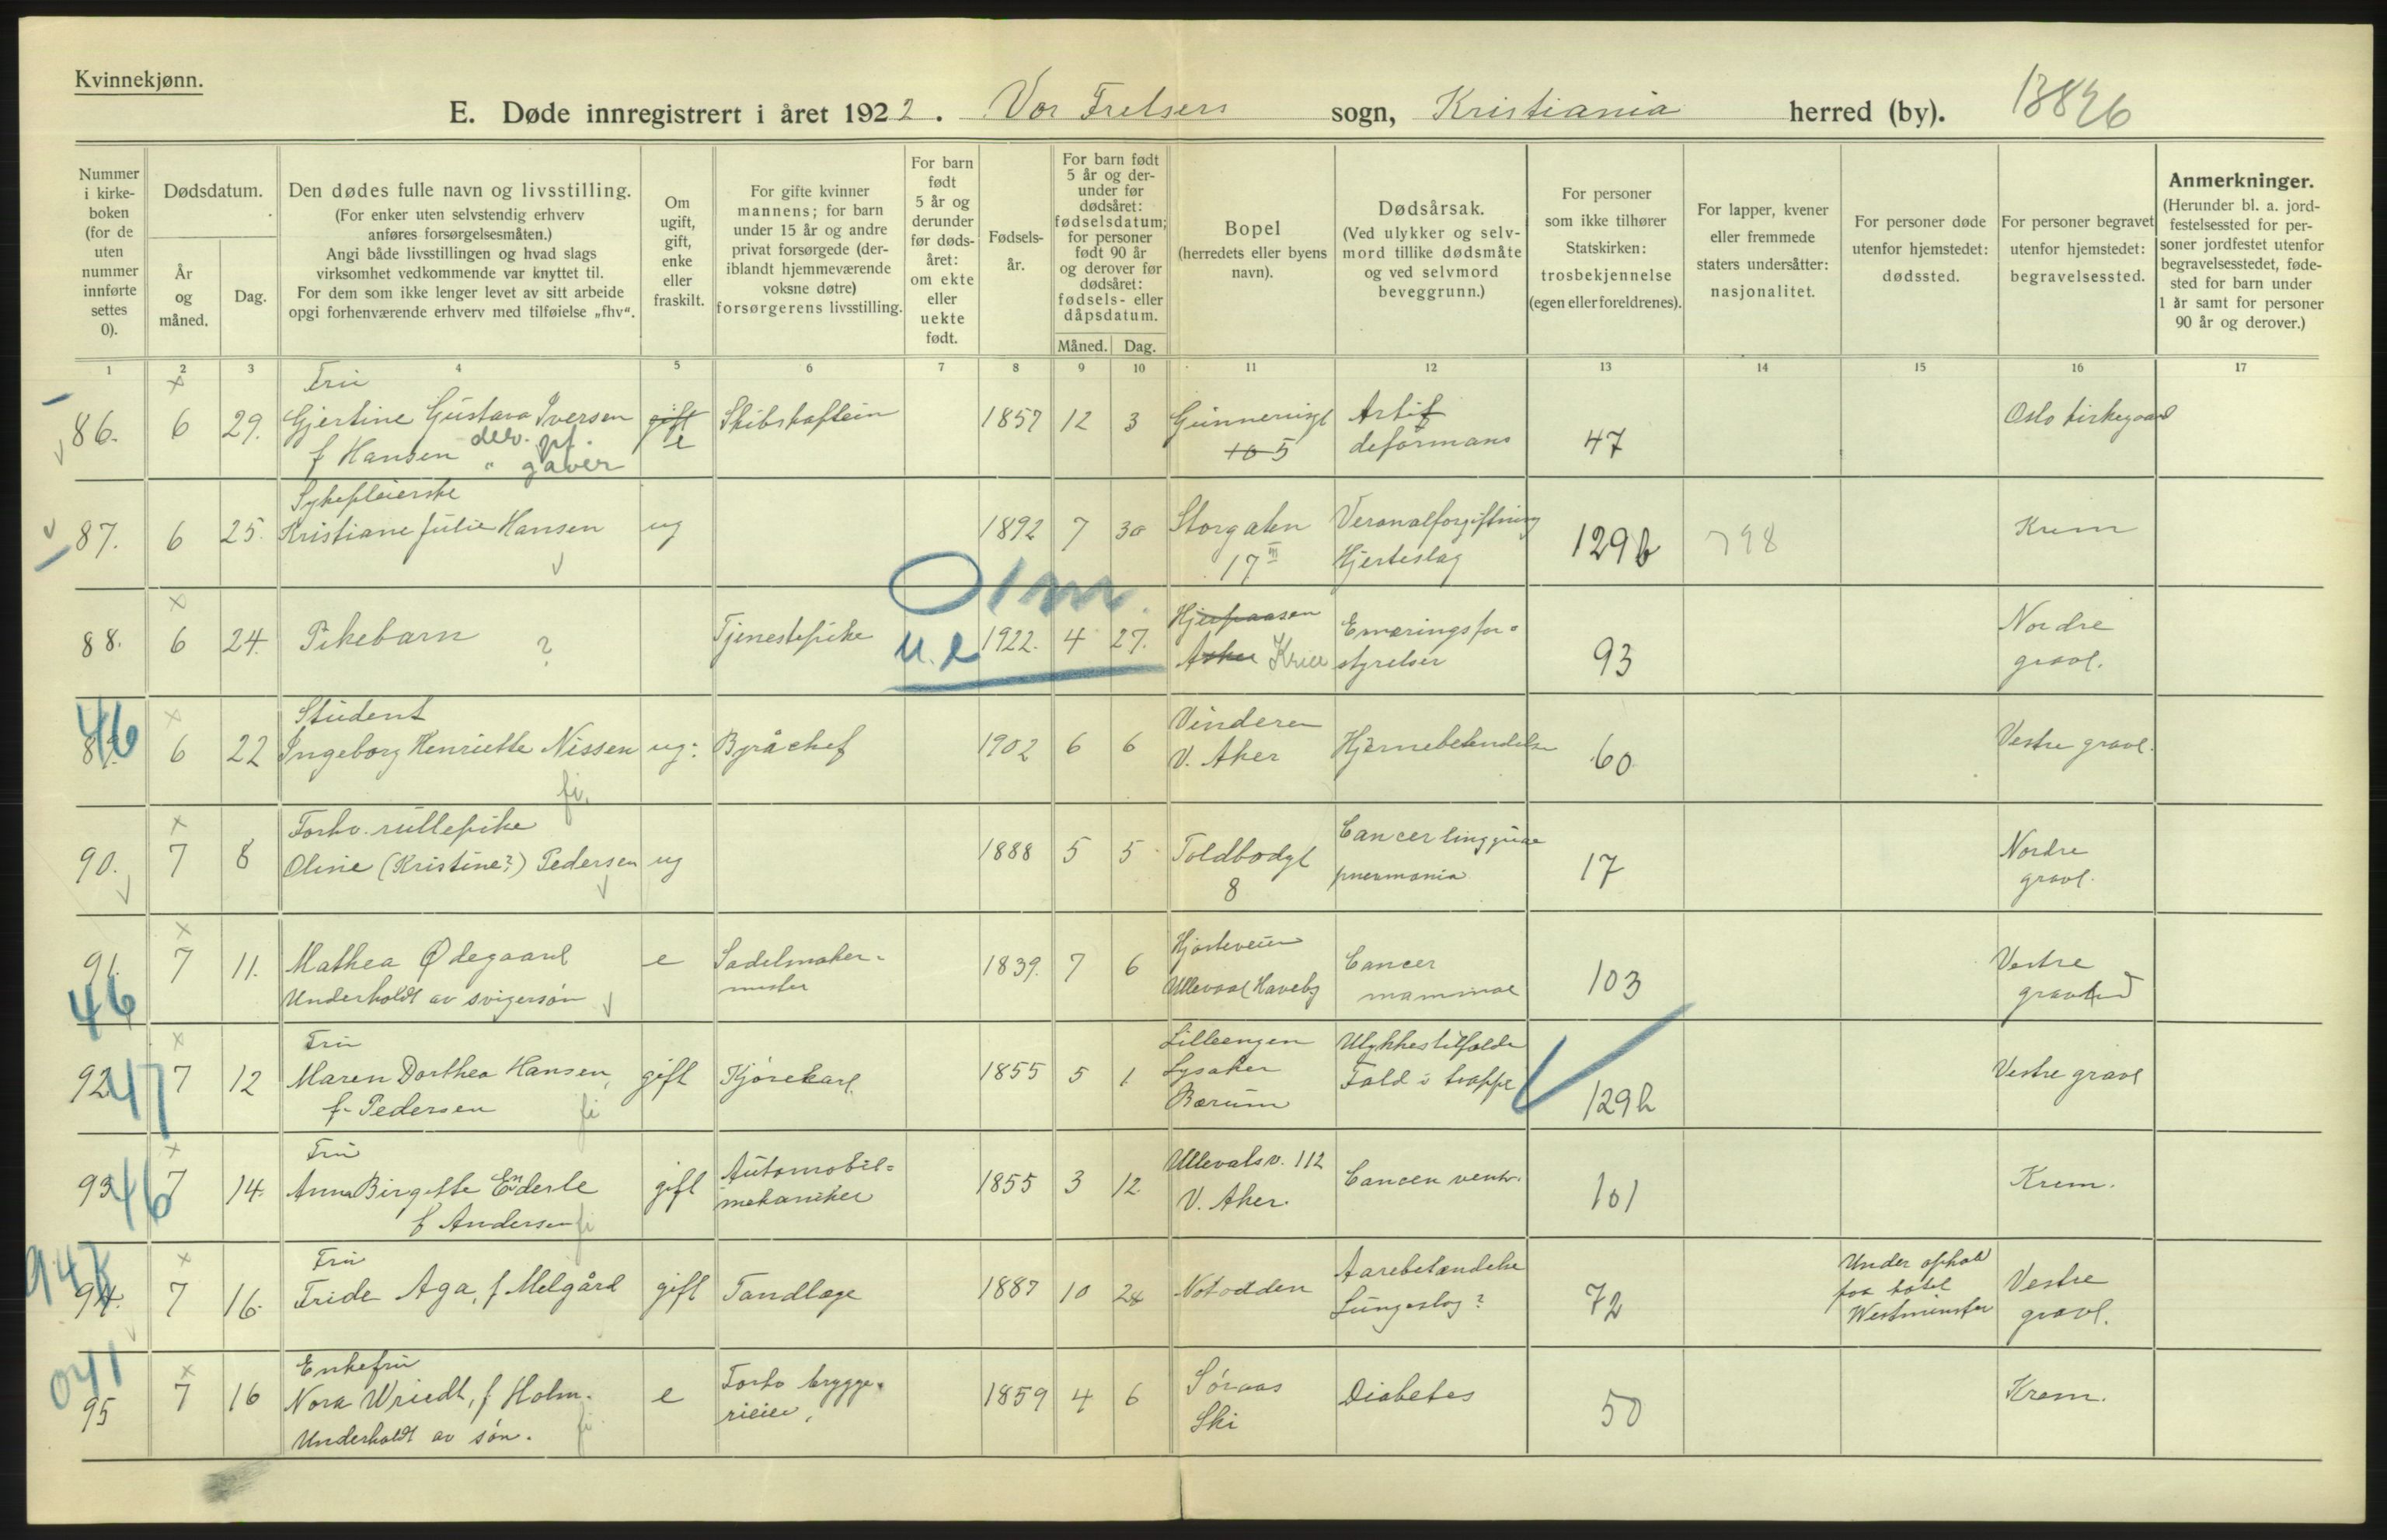 Kvinnekjønn.
E. Døde innregistrert i året 1922. Vor Frelsers sogn, Kristiania herred (by).
Nummer i kirkeboken (for de uten nummer innførte settes 0).
Dødsdatum.
År og måned.
Dag.
Den dødes fulle navn og livsstilling.
(For enker uten selvstendig erhverv anføres forsørgelsesmåten.)
Angi både livsstillingen og hvad slags virksomhet vedkommende var knyttet til.
For dem som ikke lenger levet av sitt arbeide opgi forhenværende erhverv med tilføielse „fhv“.
Om ugift, gift, enke eller fraskilt.
For gifte kvinner mannens; for barn under 15 år og andre privat forsørgede (deriblandt hjemmeværende voksne døtre) forsørgerens livsstilling.
For barn født 5 år og derunder før dødsåret: om ekte eller uekte født.
Fødselsår.
For barn født 5 år og derunder før dødsåret: fødselsdatum; for personer født 90 år og derover før dødsåret: fødsels- eller dåpsdatum.
Måned. Dag.
Bopel (herredets eller byens navn).
Dødsårsak.
(Ved ulykker og selvmord tillike dødsmåte og ved selvmord beveggrunn.)
For personer som ikke tilhører Statskirken: trosbekjennelse (egen eller foreldrenes).
For lapper, kvener eller fremmede staters undersåtter: nasjonalitet.
For personer døde utenfor hjemstedet: dødssted.
For personer begravet utenfor hjemstedet: begravelsessted.
Anmerkninger.
(Herunder bl. a. jordfestelsessted for personer jordfestet utenfor begravelsesstedet, fødested for barn under 1 år samt for personer 90 år og derover.)
1 2 3 4 5 6 7 8 9 10 11 12 13 14 15 16 17
Fru
86. 6 29. Gjertine Gustava Iversen gift Skibskaptein 1857 12 3 Gunnerusgt Artif Oslo kirkegaard
f Hansen delv. pf. e 10 5 deformans 47
" gaver
Sykepleierske
87. 6 25. Kristiane Julie Hansen ug 1892 7 30 Storgaten Veronalforgiftning 129b 798 Krem
17 III Hjerteslag
88. 6 24. Pikebarn ? Tjenestepike u.e 1922. 4 27. Ernæringsfor- 93 Nordre
Asker Kria styrelser gravl.
46
Student Vinderen
89. 6 22 Ingeborg Henriette Nissen ug: Byråchef 1902 6 6 V. Aker Hjernebetendelse 60 Vestre gravl.
fi.
Forhv. rullepike Cancer linguae
90. 7 8 Oline (Kristine?) Pedersen ug 1888 5 5 Toldbodgt 17 Nordre
8 pneumonia gravl.
91. 7 11. Mathea Ødegaard e Sadelmaker- 1839. 7 6 Cancer 103 Vestre
46 Underholdt av svigersøn mester Ullevaal Haveby mammae gravlund
Fru Lilleengen Ulykkestilfælde
92 47 7 12 Maren Dorthea Hansen, gift Kjørekarl 1855 5 1 Lysaker Fald i trappe Vestre gravl
f. Pedersen fi Bærum 129h
Fru Automobil- Ullevalsv. 112
93 46 7 14. Anna Birgitte Enderle gift mekaniker 1855 3 12 V. Aker. Cancer ventr. 101 Krem.
f Andersen fi
Fru Aarebetændelse Under ophold
94. 7 16. Fride Aga, f Melgård gift Tandlæge 1887 10 28 Notodden Lungeslag? 72 paa hotel Westminster Vestre gravl.
Enkefru
95 7 16 Nora Wriedt, f Holm. e Forhv brygge- 1859 4 6 Søraas Diabetes 50 Krem.
Underholdt av søn. fi rieier, Ski